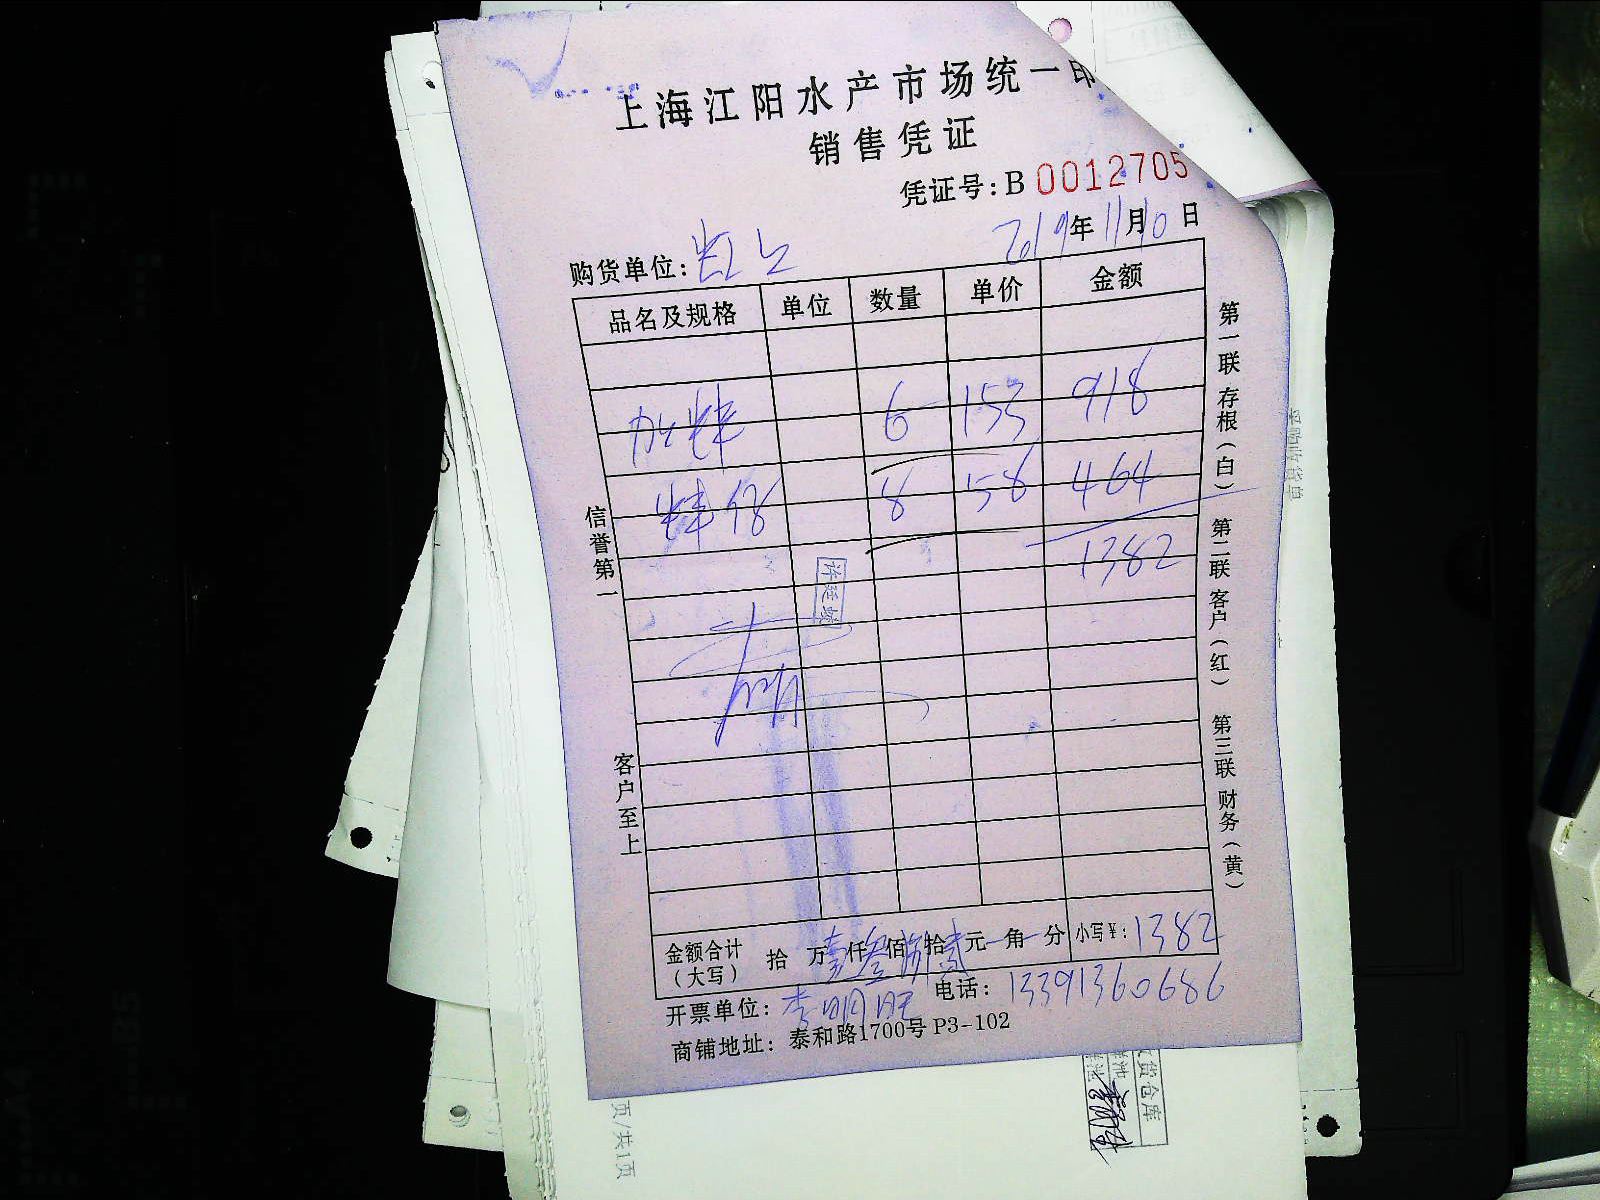 上海江阳水产市场统一印
销售凭证
凭证号:B 0012705
2019年11月10日
购货单位:
品名及规格 单位 数量 单价 金额
6 153 918
8 58 464
1382
信誉第一
客户至上
第一联 存根(白) 第二联 客户(红) 第三联 财务(黄)
金额合计(大写) 拾 万壹仟叁佰捌拾贰元 角 分 小写¥:1382
开票单位:李明旺 电话:13391360686
商铺地址:泰和路1700号 P3-102
货仓库
页/共1页